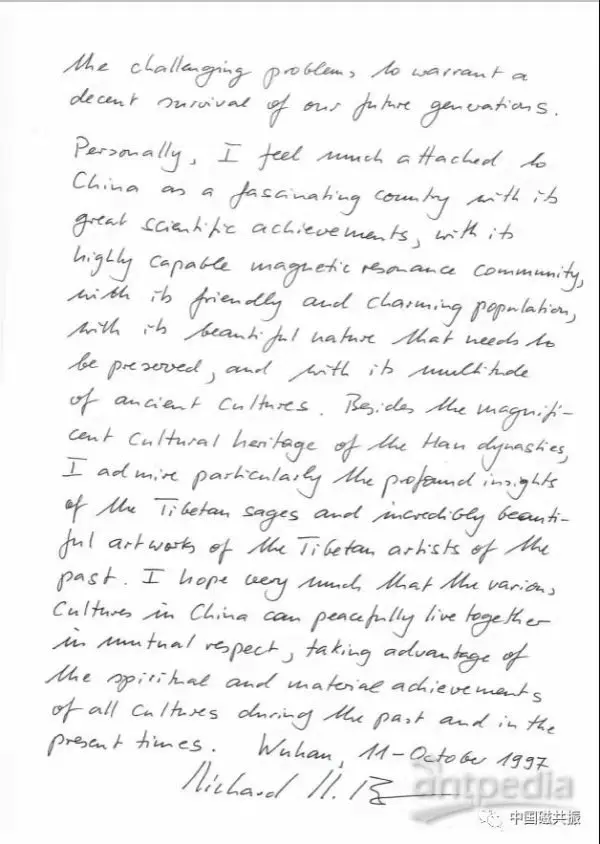 the challenging problems to warrant a
decent survival of our future generations.
Personally, I feel much attached to
China as a fascinating country with its
great scientific achievements, with its
highly capable magnetic resonance community,
with its friendly and charming population,
with its beautiful nature that needs to
be preserved, and with its multitude
of ancient cultures. Besides the magnifi-
cent cultural heritage of the Han dynasties,
I admire particularly the profound insights
of the Tibetan sages and incredibly beauti-
ful artworks of the Tibetan artists of the
past. I hope very much that the various
cultures in China can peacefully live together
in mutual respect, taking advantage of
the spiritual and material achievements
of all cultures during the past and in the
present times. Wuhan, 11-October 1997
Richard R.
antpedia
中国磁共振